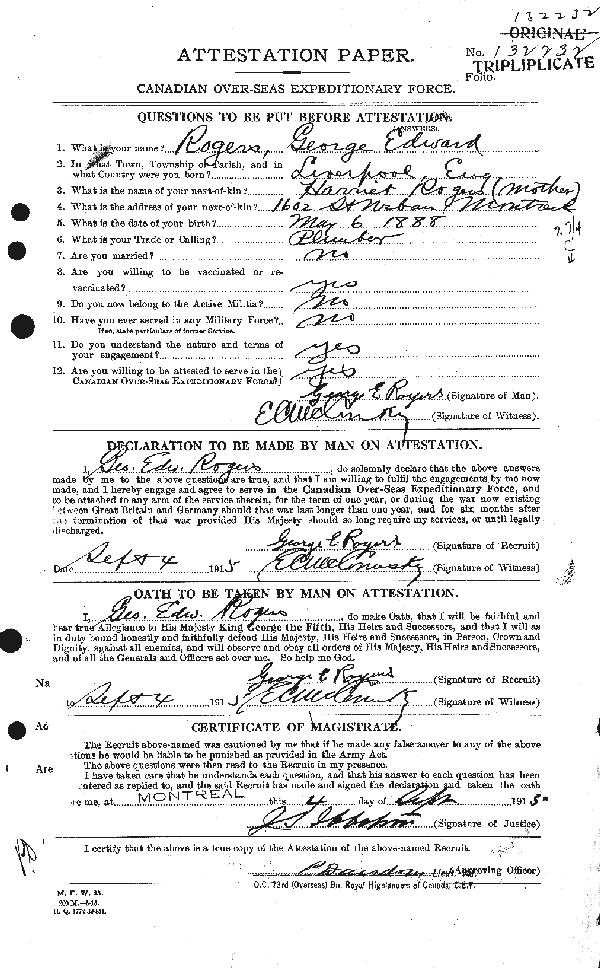 132232
ORIGINAL
ATTESTATION PAPER.
No. 132232
TRIPLIPLICATE
Folio.
CANADIAN OVER-SEAS EXPEDITIONARY FORCE.
QUESTIONS TO BE PUT BEFORE ATTESTATION.
(ANSWERS)
1. What is your name? Rogers, George Edward
2. In what Town, Township or Parish, and in
what Country were you born? Liverpool, Eng
3. What is the name of your next-of-kin? Harriet Rogers (Mother)
4. What is the address of your next-of-kin? 1602 St Urbain Montreal
5. What is the date of your birth? May 6 1888
6. What is your Trade or Calling? Plumber
7. Are you married? no
8. Are you willing to be vaccinated or re-
vaccinated? yes
9. Do you now belong to the Active Militia? no
10. Have you ever served in any Military Force? no
If so, state particulars of former Service.
11. Do you understand the nature and terms of
your engagement? yes
12. Are you willing to be attested to serve in the
CANADIAN OVER-SEAS EXPEDITIONARY FORCE? yes
George E Rogers (Signature of Man).
(Signature of Witness).
DECLARATION TO BE MADE BY MAN ON ATTESTATION.
I, Geo. Edw. Rogers, do solemnly declare that the above answers
made by me to the above questions are true, and that I am willing to fulfil the engagements by me now
made, and I hereby engage and agree to serve in the Canadian Over-Seas Expeditionary Force, and
to be attached to any arm of the service therein, for the term of one year, or during the war now existing
between Great Britain and Germany should that war last longer than one year, and for six months after
the termination of that war provided His Majesty should so long require my services, or until legally
discharged.
George E Rogers (Signature of Recruit)
Date Sept 4 1915 (Signature of Witness)
OATH TO BE TAKEN BY MAN ON ATTESTATION.
I, Geo. Edw. Rogers, do make Oath, that I will be faithful and
bear true Allegiance to His Majesty King George the Fifth, His Heirs and Successors, and that I will as
in duty bound honestly and faithfully defend His Majesty, His Heirs and Successors, in Person, Crown and
Dignity, against all enemies, and will observe and obey all orders of His Majesty, His Heirs and Successors,
and of all the Generals and Officers set over me. So help me God.
George E Rogers (Signature of Recruit)
Na
Sept 4 1915 (Signature of Witness)
Ad
CERTIFICATE OF MAGISTRATE.
The Recruit above-named was cautioned by me that if he made any false answer to any of the above
questions he would be liable to be punished as provided in the Army Act.
The above questions were then read to the Recruit in my presence.
Are
I have taken care that he understands each question, and that his answer to each question has been
entered as replied to, and the said Recruit has made and signed the declaration and taken the oath
re me, at MONTREAL this 4 day of Sept 1915
(Signature of Justice)
I certify that the above is a true copy of the Attestation of the above-named Recruit.
(Approving Officer)
O.C. 73rd (Overseas) Bn. Royal Highlanders of Canada, C.E.F.
M. F. W. 23.